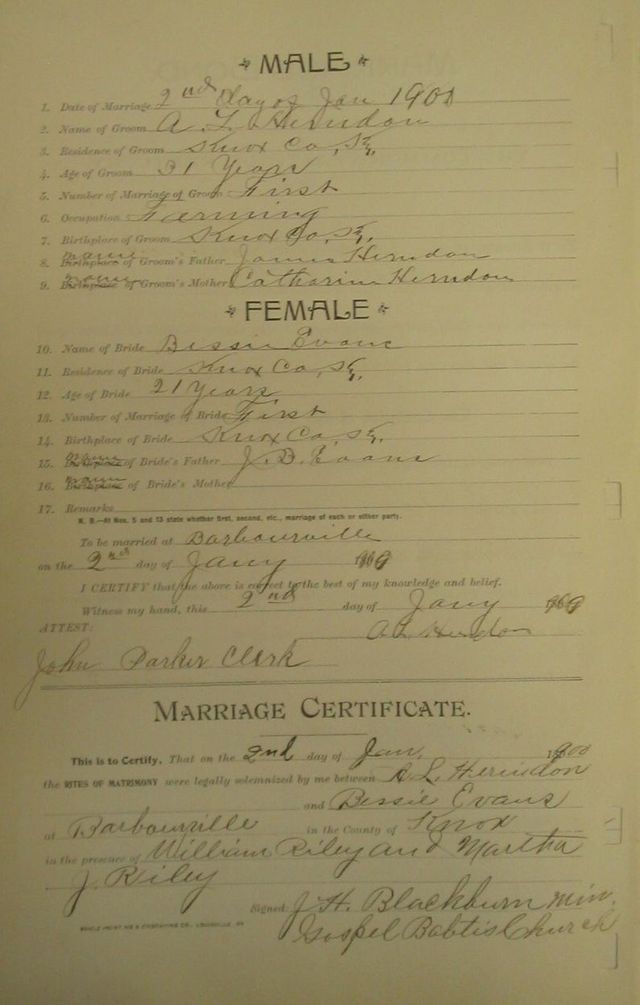 MALE
1. Date of Marriage 2nd day of Jan 1900
2. Name of Groom A. L. Herndon
3. Residence of Groom Knox Co, Ky,
4. Age of Groom 31 Years
5. Number of Marriage of Groom First
6. Occupation Ferming
7. Birthplace of Groom Knox Co, Ky.
8. name Birthplace of Groom's Father James Herndon
9. name Birthplace of Groom's Mother Catharine Herndon
FEMALE
10. Name of Bride Bessie Evans
11. Residence of Bride Knox Co, Ky.
12. Age of Bride 21 Years
13. Number of Marriage of Bride First
14. Birthplace of Bride Knox Co, Ky.
15. name Birthplace of Bride's Father J. B. Evans
16. name Birthplace of Bride's Mother
17. Remarks
N. B.—At Nos. 5 and 13 state whether first, second, etc., marriage of each or either party.
To be married at Barbourville
on the 2nd day of Jany
I CERTIFY that the above is correct to the best of my knowledge and belief.
Witness my hand, this 2nd day of Jany
ATTEST:
A L Herndon
John Parker Clerk
MARRIAGE CERTIFICATE.
This is to Certify, That on the 2nd day of Jan, 1900
the RITES OF MATRIMONY were legally solemnized by me between A. L. Herndon
and Bessie Evans
at Barbourville in the County of Knox
in the presence of William Riley and Martha
J. Riley
Signed J. H. Blackburn min.
Gospel Babtis Church